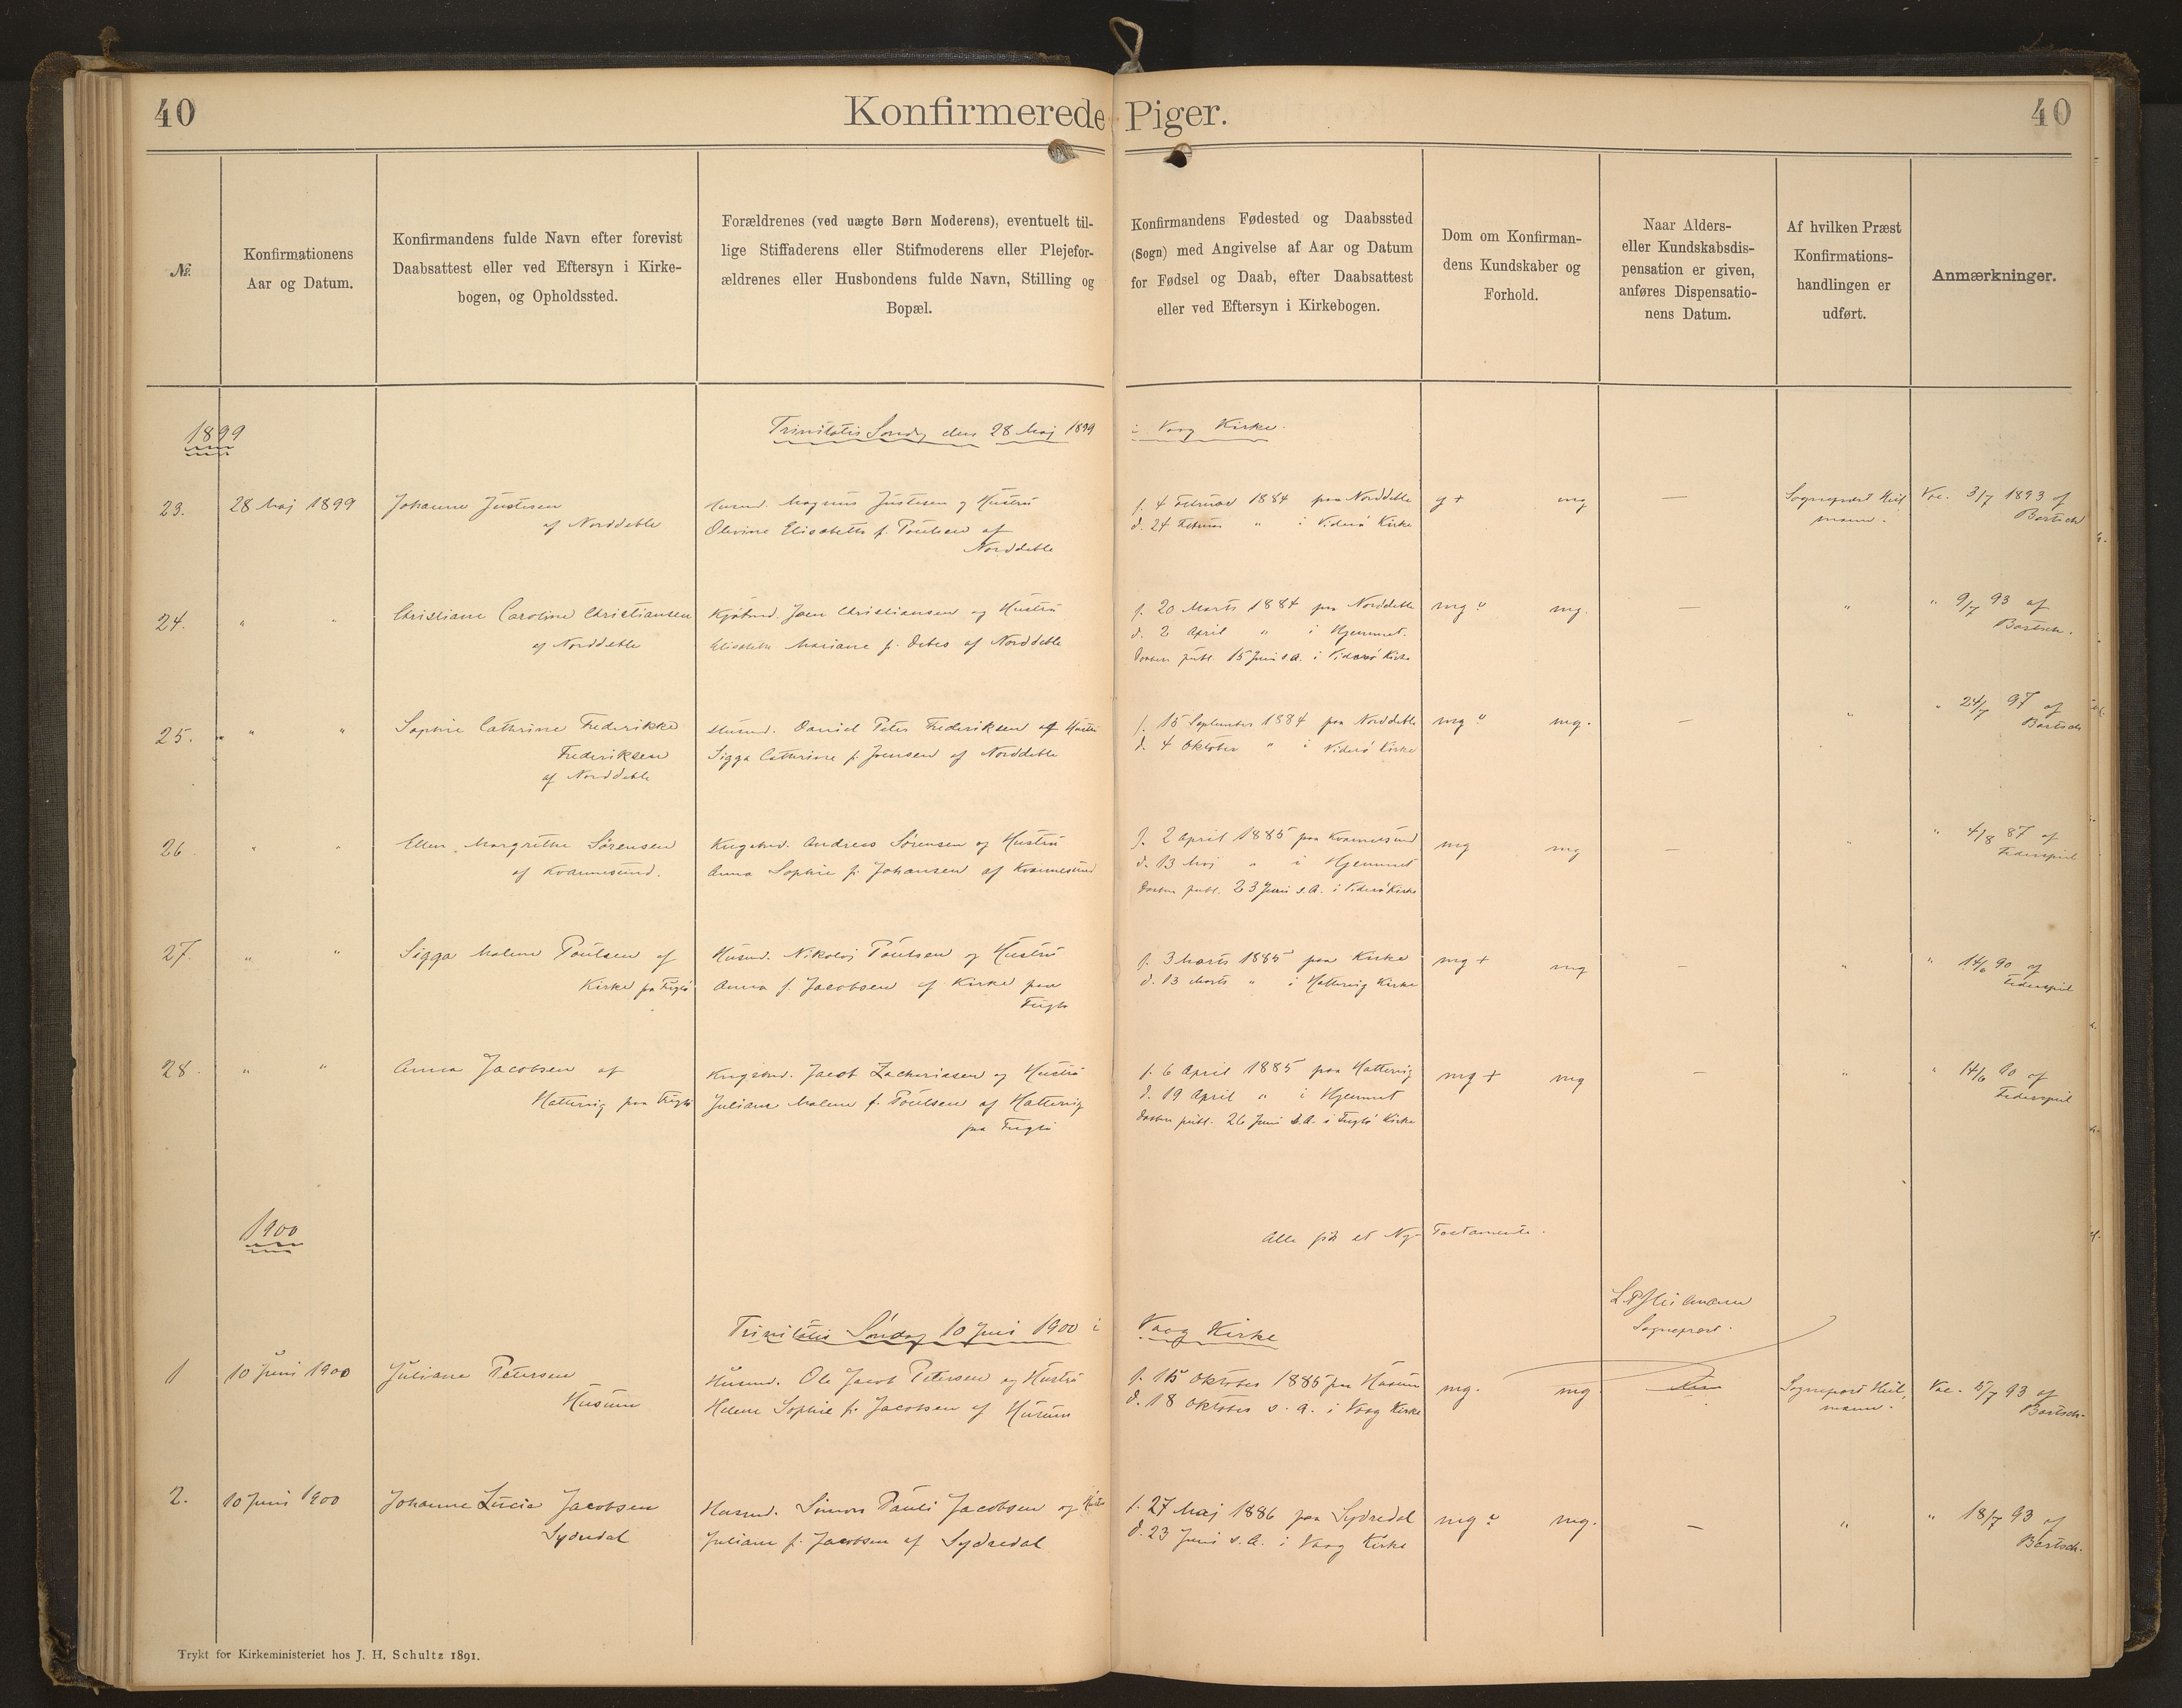 40
Konfirmerede Piger.
40
№
Konfirmationens
Aar og Datum.
Konfirmandens fulde Navn efter forevist
Daabsattest eller ved Eftersyn i Kirke-
bogen, og Opholdssted.
Forældrenes (ved uægte Børn Moderens), eventuelt til-
lige Stiffaderens eller Stifmoderens eller Plejefor-
ældrenes eller Husbondens fulde Navn, Stilling og
Bopæl.
Konfirmandens Fødested og Daabssted
(Sogn) med Angivelse af Aar og Datum
for Fødsel og Daab, efter Daabsattest
eller ved Eftersyn i Kirkebogen.
Dom om Konfirman-
dens Kundskaber og
Forhold.
Naar Alders-
eller Kundskabsdis-
pensation er given,
anføres Dispensatio-
nens Datum.
Af hvilken Præst
Konfirmations-
handlingen er
udført.
Anmærkninger.
1899
Trinitatis Søndag den 28 Maj 1899 i Vaag Kirke.
23.
28 Maj 1899
Johanne Justesen
af Norddeble
Husmd. Magnus Justesen og Hustru
Olevine Elisabeth f. Poulsen af
Norddeble
f. 4 Februar 1884 paa Norddeble
d. 24 Februar " i Viderø Kirke
g + mg
—
Sognepræst Heil
mann.
Vac. 3/7 1893 af
Bartsch
24.
" "
Christiane Caroline Christiansen
af Norddeble
Kjøbmd. Joen Christiansen og Hustru
Elisabeth Mariane f. Debes af Norddeble
f. 20 Marts 1884 paa Norddeble
d. 2 April " i Hjemmet.
Daaben publ. 15 Juni s.A. i Viderø Kirke
mg mg.
—
"
" 9/7 93 af
Bartsch.
25.
" "
Sophie Cathrine Frederikke
Frederiksen
af Norddeble
Husmd. Daniel Peter Frederiksen og Hustru
Sigga Cathrine f. Joensen af Norddeble
f. 15 September 1884 paa Norddeble
d. 4 Oktober " i Viderø Kirke
mg mg.
—
"
" 24/7 97 af
Bartsch
26
" "
Ellen Margrethe Sørensen
af Kvannesund.
Kngsbmd. Andreas Sørensen og Hustru
Anna Sophie f. Johansen af Kvannesund
f. 2 April 1885 paa Kvannesund
d. 13 Maj " i Hjemmet
Daaben publ. 23 Juni s.A. i Viderø Kirke
mg mg
—
"
" 4/8 87 af
Federspiel
27.
" "
Sigga Malene Poulsen af
Kirke pa Fuglø
Husmd. Nikolaj Poulsen og Hustru
Anna f. Jacobsen af Kirke paa
Fuglø
f. 3 Marts 1885 paa Kirke
d. 13 Marts " i Hattervig Kirke
mg + mg
—
"
" 14/6 90 af
Federspiel
28.
" "
Anna Jacobsen af
Hattervig paa Fuglø
Kngsbmd. Jacob Zachariasen og Hustru
Juliane Malene f. Poulsen af Hattervig
paa Fuglø
f. 6 April 1885 paa Hattervig
d. 19 April " i Hjemmet
Daaben publ. 26 Juni s.A. i Fuglø Kirke
mg + mg
—
"
" 14/6 90 af
Federspiel
1900
Alle fik et Ny-Testamente.
L.P. Heilmann
Sognepræst.
Trinitatis Søndag 10 Juni 1900 i Vaag Kirke
1
10 Juni 1900
Juliane Petersen
Husum
Husmd. Ole Jacob Petersen og Hustru
Helene Sophie f. Jacobsen af Husum
f. 15 Oktober 1885 paa Husum
d. 18 Oktober s. A. i Vaag Kirke
mg. mg.
Sognepræst Heil,
mann.
Vac. 5/7 93 af
Bartsch.
2.
10 Juni 1900
Johanne Lucia Jacobsen
Sydredal
Husmd. Simon Pauli Jacobsen og Hustru
Juliane f. Jacobsen af Sydredal
f. 27 Maj 1886 paa Sydredal
d. 23 Juni s. A. i Vaag Kirke
mg mg.
—
"
" 18/7 93 af
Bartsch.
Trykt for Kirkeministeriet hos J. H. Schultz 1891.